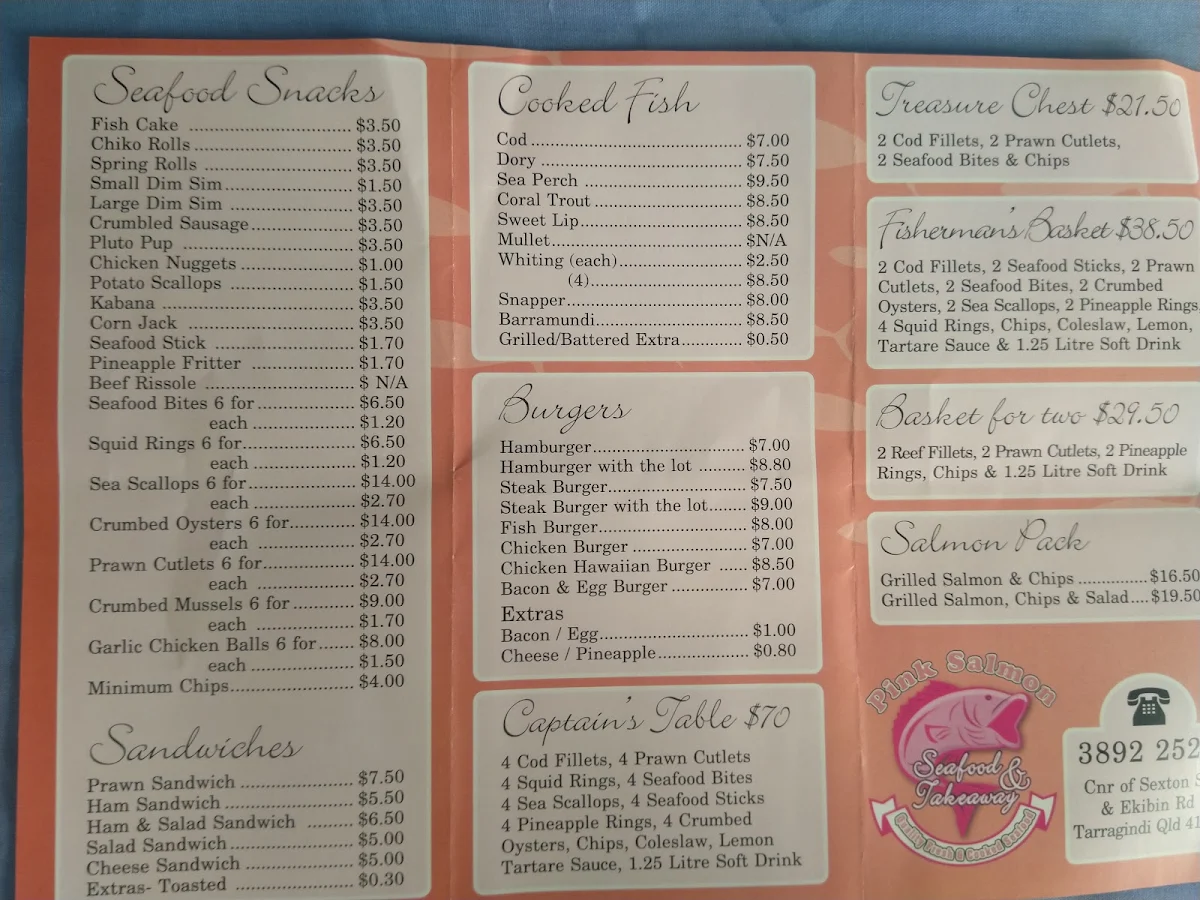 Seafood Snacks
Fish Cake ............................ $3.50
Chiko Rolls ........................... $3.50
Spring Rolls .......................... $3.50
Small Dim Sim ..................... $1.50
Large Dim Sim ..................... $3.50
Crumbled Sausage ................. $3.50
Pluto Pup ............................ $3.50
Chicken Nuggets ................... $1.00
Potato Scallops ..................... $1.50
Kabana ................................ $3.50
Corn Jack ............................ $3.50
Seafood Stick ....................... $1.70
Pineapple Fritter ................. $1.70
Beef Rissole ......................... $ N/A
Seafood Bites 6 for ................ $6.50
each .................. $1.20
Squid Rings 6 for ................... $6.50
each .................. $1.20
Sea Scallops 6 for .................. $14.00
each .................. $2.70
Crumbed Oysters 6 for ........... $14.00
each .................. $2.70
Prawn Cutlets 6 for ................ $14.00
each .................. $2.70
Crumbed Mussels 6 for .......... $9.00
each .................. $1.70
Garlic Chicken Balls 6 for ...... $8.00
each .................. $1.50
Minimum Chips ..................... $4.00
Sandwiches
Prawn Sandwich ................... $7.50
Ham Sandwich ..................... $5.50
Ham & Salad Sandwich ........ $6.50
Salad Sandwich .................... $5.00
Cheese Sandwich .................. $5.00
Extras- Toasted .................... $0.30
Cooked Fish
Cod ....................................... $7.00
Dory ..................................... $7.50
Sea Perch ............................. $9.50
Coral Trout ........................... $8.50
Sweet Lip .............................. $8.50
Mullet ................................... $N/A
Whiting (each) ...................... $2.50
(4) ........................... $8.50
Snapper ................................ $8.00
Barramundi ........................... $8.50
Grilled/Battered Extra ............ $0.50
Burgers
Hamburger ............................ $7.00
Hamburger with the lot ......... $8.80
Steak Burger .......................... $7.50
Steak Burger with the lot ....... $9.00
Fish Burger ............................ $8.00
Chicken Burger ..................... $7.00
Chicken Hawaiian Burger ...... $8.50
Bacon & Egg Burger .............. $7.00
Extras
Bacon / Egg ........................... $1.00
Cheese / Pineapple ................. $0.80
Captain's Table $70
4 Cod Fillets, 4 Prawn Cutlets
4 Squid Rings, 4 Seafood Bites
4 Sea Scallops, 4 Seafood Sticks
4 Pineapple Rings, 4 Crumbed
Oysters, Chips, Coleslaw, Lemon
Tartare Sauce, 1.25 Litre Soft Drink
Treasure Chest $21.50
2 Cod Fillets, 2 Prawn Cutlets,
2 Seafood Bites & Chips
Fisherman's Basket $38.50
2 Cod Fillets, 2 Seafood Sticks, 2 Prawn
Cutlets, 2 Seafood Bites, 2 Crumbed
Oysters, 2 Sea Scallops, 2 Pineapple Rings,
4 Squid Rings, Chips, Coleslaw, Lemon,
Tartare Sauce & 1.25 Litre Soft Drink
Basket for two $29.50
2 Reef Fillets, 2 Prawn Cutlets, 2 Pineapple
Rings, Chips & 1.25 Litre Soft Drink
Salmon Pack
Grilled Salmon & Chips .............. $16.50
Grilled Salmon, Chips & Salad .... $19.50
Pink Salmon
Seafood &
Takeaway
Quality Fresh & Cooked Seafood
3892 252
Cnr of Sexton S
& Ekibin Rd
Tarragindi Qld 41